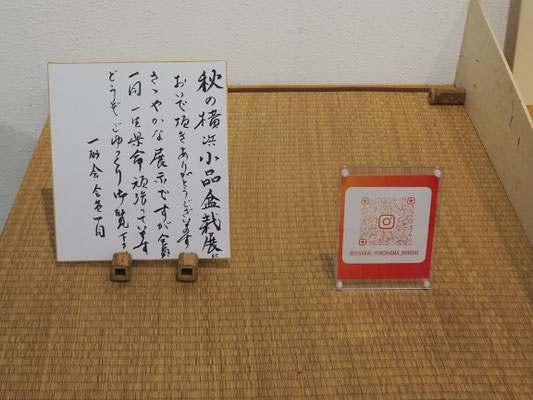 秋の横浜小品盆栽展に
おいで頂きありがとうございます
ささやかな展示ですが会員
一同一生懸命頑張っています
どうぞごゆっくり御覧下さい
会員一同
@ISSAKAI_YOKOHAMA_BONSAI